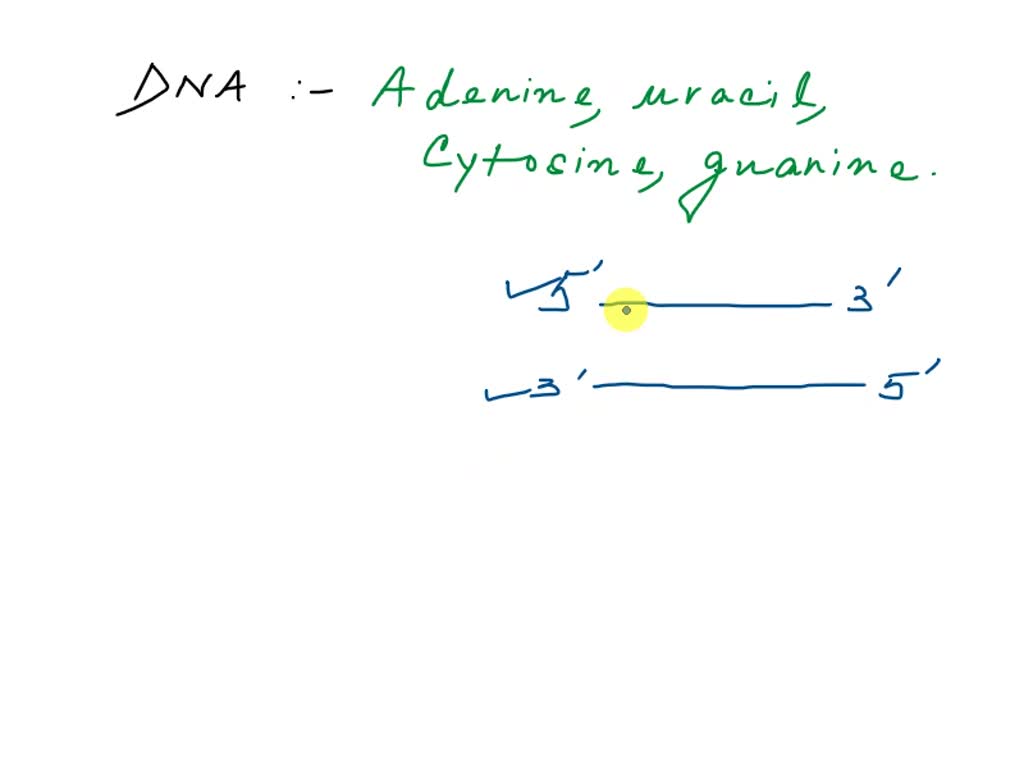 DNA :- Adenine, uracil,
Cytosine, guanine.
5' 3'
3' 5'